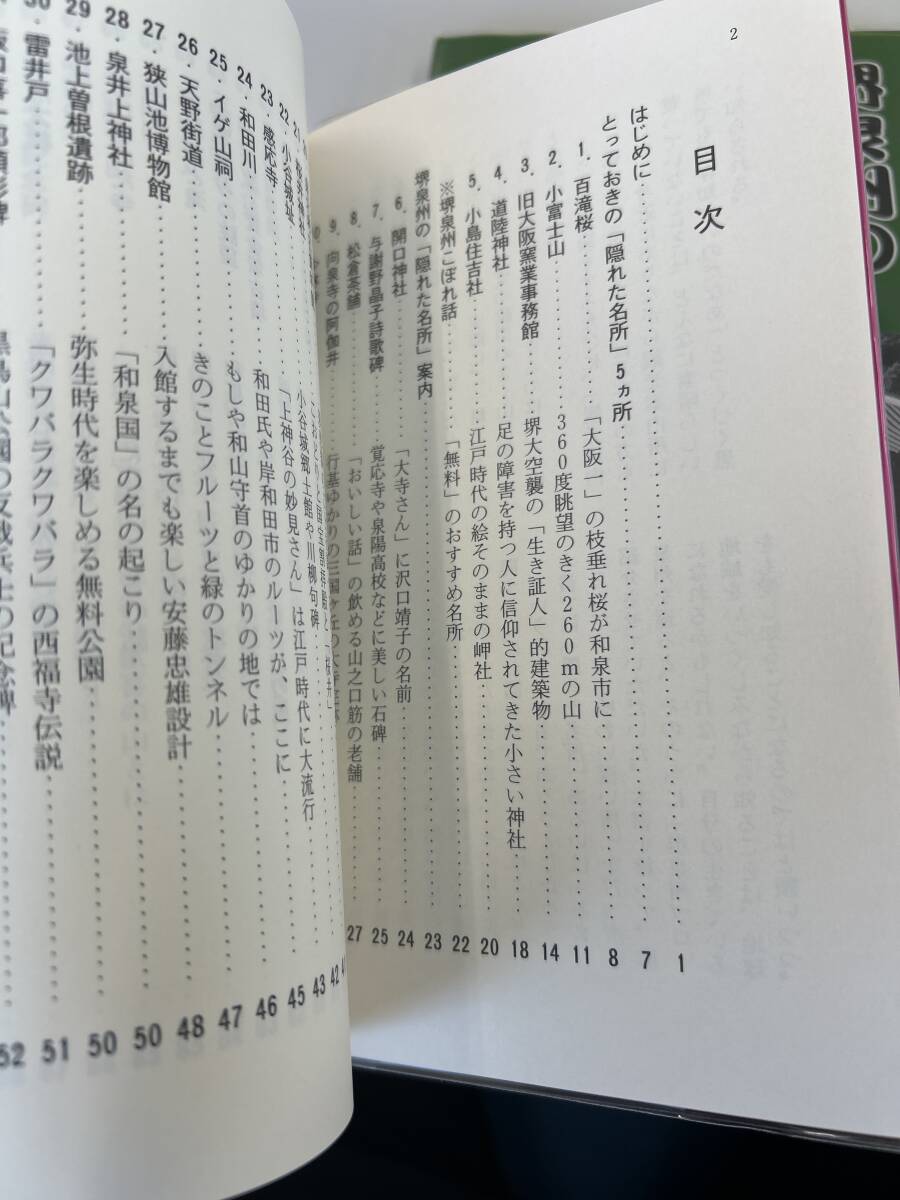 2
目次
はじめに 1
とっておきの「隠れた名所」5ヵ所 7
1.百滝桜 「大阪一」の枝垂れ桜が和泉市に 8
2.小富士山 360度眺望のきく260mの山 11
3.旧大阪窯業事務館 堺大空襲の「生き証人」的建築物 14
4.道陸神社 足の障害を持つ人に信仰されてきた小さい神社 18
5.小島住吉社 江戸時代の絵そのままの岬社 20
※堺泉州こぼれ話 「無料」のおすすめ名所 22
堺泉州の「隠れた名所」案内 23
6.開口神社 「大寺さん」に沢口靖子の名前 24
7.与謝野晶子詩歌碑 覚応寺や泉陽高校などに美しい石碑 25
8.松倉茶舗 「おいしい話」の飲める山之口筋の老舗 27
9.向泉寺の阿伽井 行基ゆかりの三国ヶ丘の
21.桜井神社
22.小谷城址 小谷城郷土館や川柳句碑 42
23.感応寺 「上神谷の妙見さん」は江戸時代に大流行 43
24.和田川 和田氏や岸和田市のルーツが、ここに 45
25.イゲ山祠 もしや和山守首のゆかりの地では 46
26.天野街道 きのことフルーツと緑のトンネル 47
27.狭山池博物館 入館するまでも楽しい安藤忠雄設計 48
28.泉井上神社 「和泉国」の名の起こり 50
29.池上曽根遺跡 弥生時代を楽しめる無料公園 50
30.雷井戸 「クワバラクワバラ」の西福寺伝説 51
52
堺泉州の